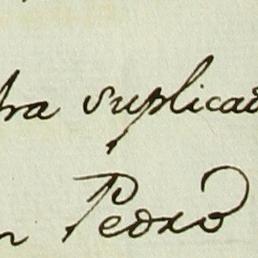 tra suplicad
n Pedro